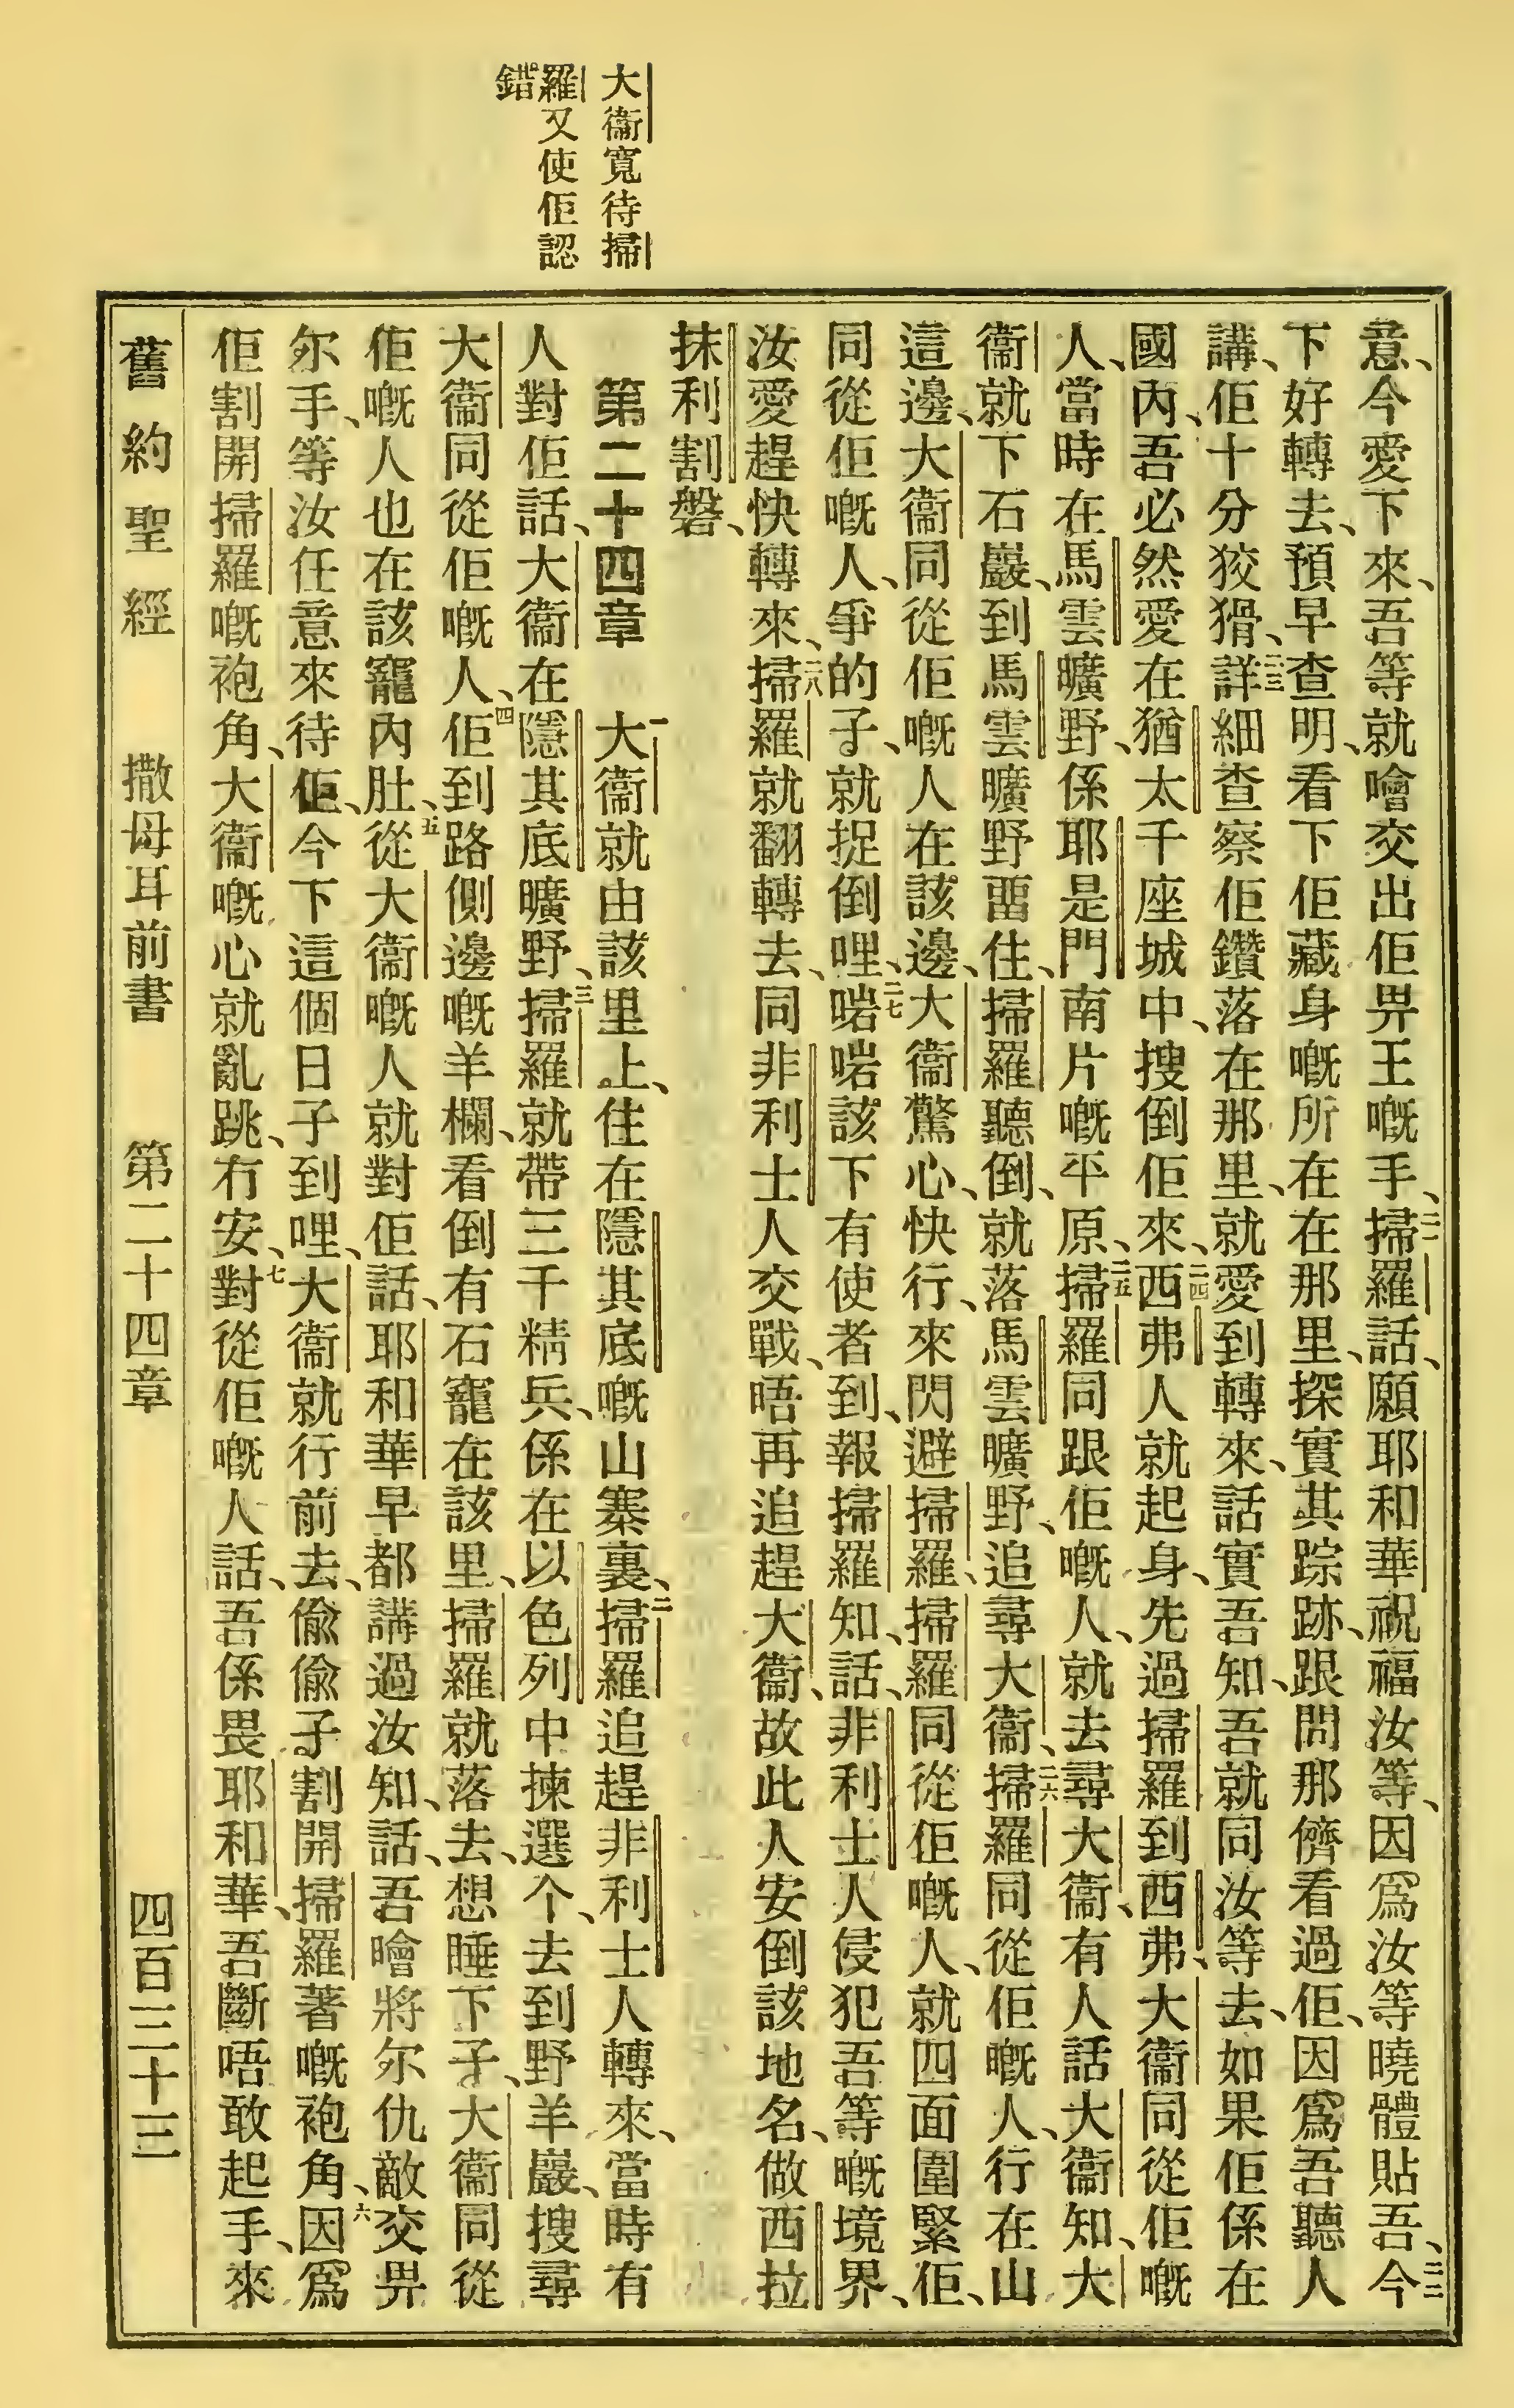 大衞寬待掃
羅又使佢認
錯。
意、今愛下來、吾等就噲交出佢畀王嘅手、二一掃羅話、願耶和華祝福汝等、因爲汝等曉體貼吾、二二今
下好轉去、預早查明、看下佢藏身嘅所在在那里、探實其踪跡、跟問那儕看過佢、因爲吾聽人
講、佢十分狡猾、二三詳細查察佢鑽落在那里、就愛到轉來、話實吾知、吾就同汝等去、如果佢係在
國內、吾必然愛在猶太千座城中、搜倒佢來、二四西弗人就起身、先過掃羅到西弗、大衞同從佢嘅
人、當時在馬雲曠野、係耶是門南片嘅平原、二五掃羅同跟佢嘅人、就去尋大衞、有人話大衞知、大
衞就下石巖、到馬雲曠野畱住、掃羅聽倒、就落馬雲曠野、追尋大衞、二六掃羅同從佢嘅人、行在山
這邊、大衞同從佢嘅人在該邊、大衞驚心、快行、來閃避掃羅、掃羅同從佢嘅人、就四面圍緊佢、
同從佢嘅人、爭的子、就捉倒哩、二七啱啱該下有使者到、報掃羅知、話、非利士人侵犯吾等嘅境界、
汝愛趕快轉來、二八掃羅就翻轉去、同非利士人交戰、唔再追趕大衞、故此人安倒該地名、做西拉
抹利割磐、
第二十四章 一大衞就由該里上、住在隱其底嘅山寨裏、二掃羅追趕非利士人轉來、當時有
人對佢話、大衞在隱其底曠野、三掃羅就帶三千精兵、係在以色列中揀選个、去到野羊巖、搜尋
大衞同從佢嘅人、四佢到路側邊嘅羊欄、看倒有石竉在該里、掃羅就落去、想睡下子、大衞同從
佢嘅人也在該竉內肚、五從大衞嘅人就對佢話、耶和華早都講過汝知、話、吾噲將尔仇敵交畀
尔手、等汝任意來待佢、今下這個日子到哩、大衞就行前去、偸偸子割開掃羅著嘅袍角、六因爲
佢割開掃羅嘅袍角、大衞嘅心就亂跳、冇安、七對從佢嘅人話、吾係畏耶和華、吾斷唔敢起手、來
舊約聖經 撒母耳前書 第二十四章 四百三十三